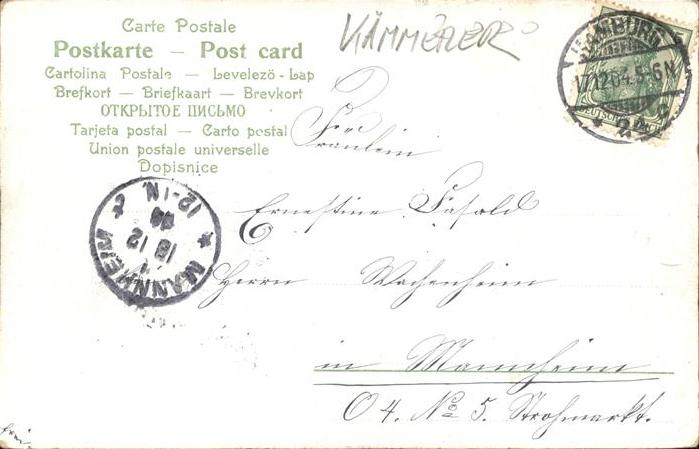 Carte Postale
Postkarte — Post card
Cartolina Postale — Levelezö-Lap
Brefkort — Briefkaart — Brevkort
ОТКРЫТОЕ ПИСЬМО
Tarjeta postal — Carto postal
Union postale universelle
Dopisnice
KÄMMERER
HAMBURG
17.12.04.5-6N
2
DEUTSCHES REICH
5
MANNHEIM 2
18 12
04
12-1N.
Fräulein
Ernestine Fasold
Herrn Wachenheim
in Mannheim
O 4. No 5. Strohmarkt.